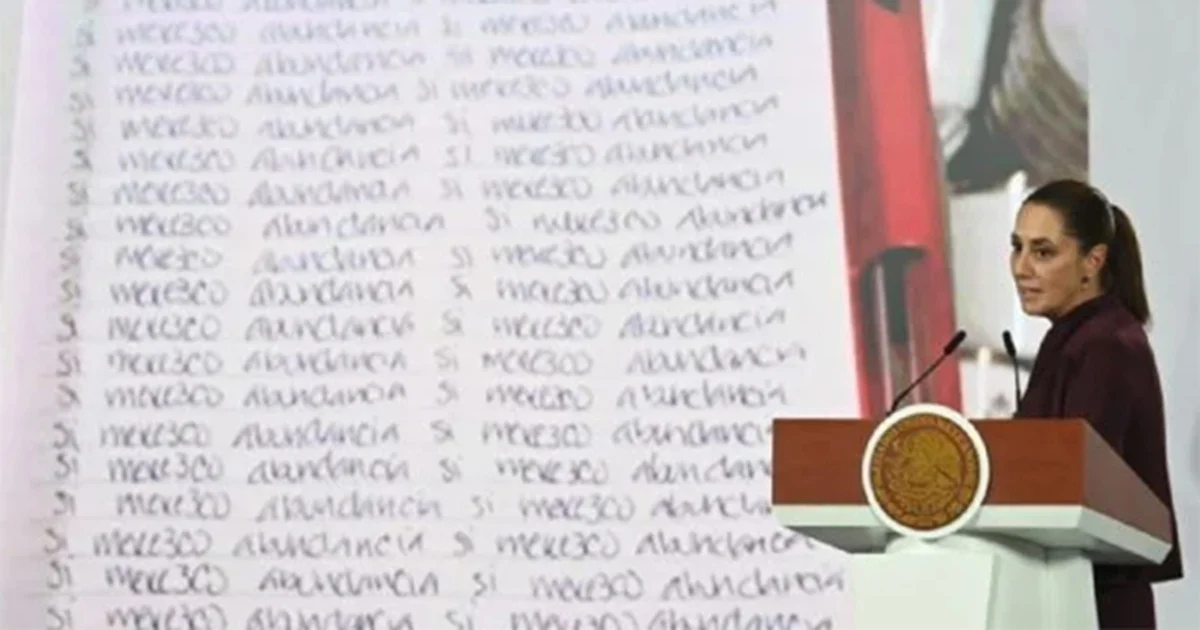 Si merezco abundancia si merezco abundancia
Si merezco abundancia si merezco abundancia
Si merezco abundancia si merezco abundancia
Si merezco abundancia si merezco abundancia
Si merezco abundancia si merezco abundancia
Si merezco abundancia si merezco abundancia
Si merezco abundancia si merezco abundancia
Si merezco abundancia si merezco abundancia
Si merezco abundancia si merezco abundancia
Si merezco abundancia si merezco abundancia
Si merezco abundancia si merezco abundancia
Si merezco abundancia si merezco abundancia
Si merezco abundancia si merezco abundancia
Si merezco abundancia si merezco
Si merezco abundancia si merezco
Si merezco abundancia si merezco abundancia
Si merezco abundancia si merezco abundancia
Si merezco abundancia si merezco abundancia